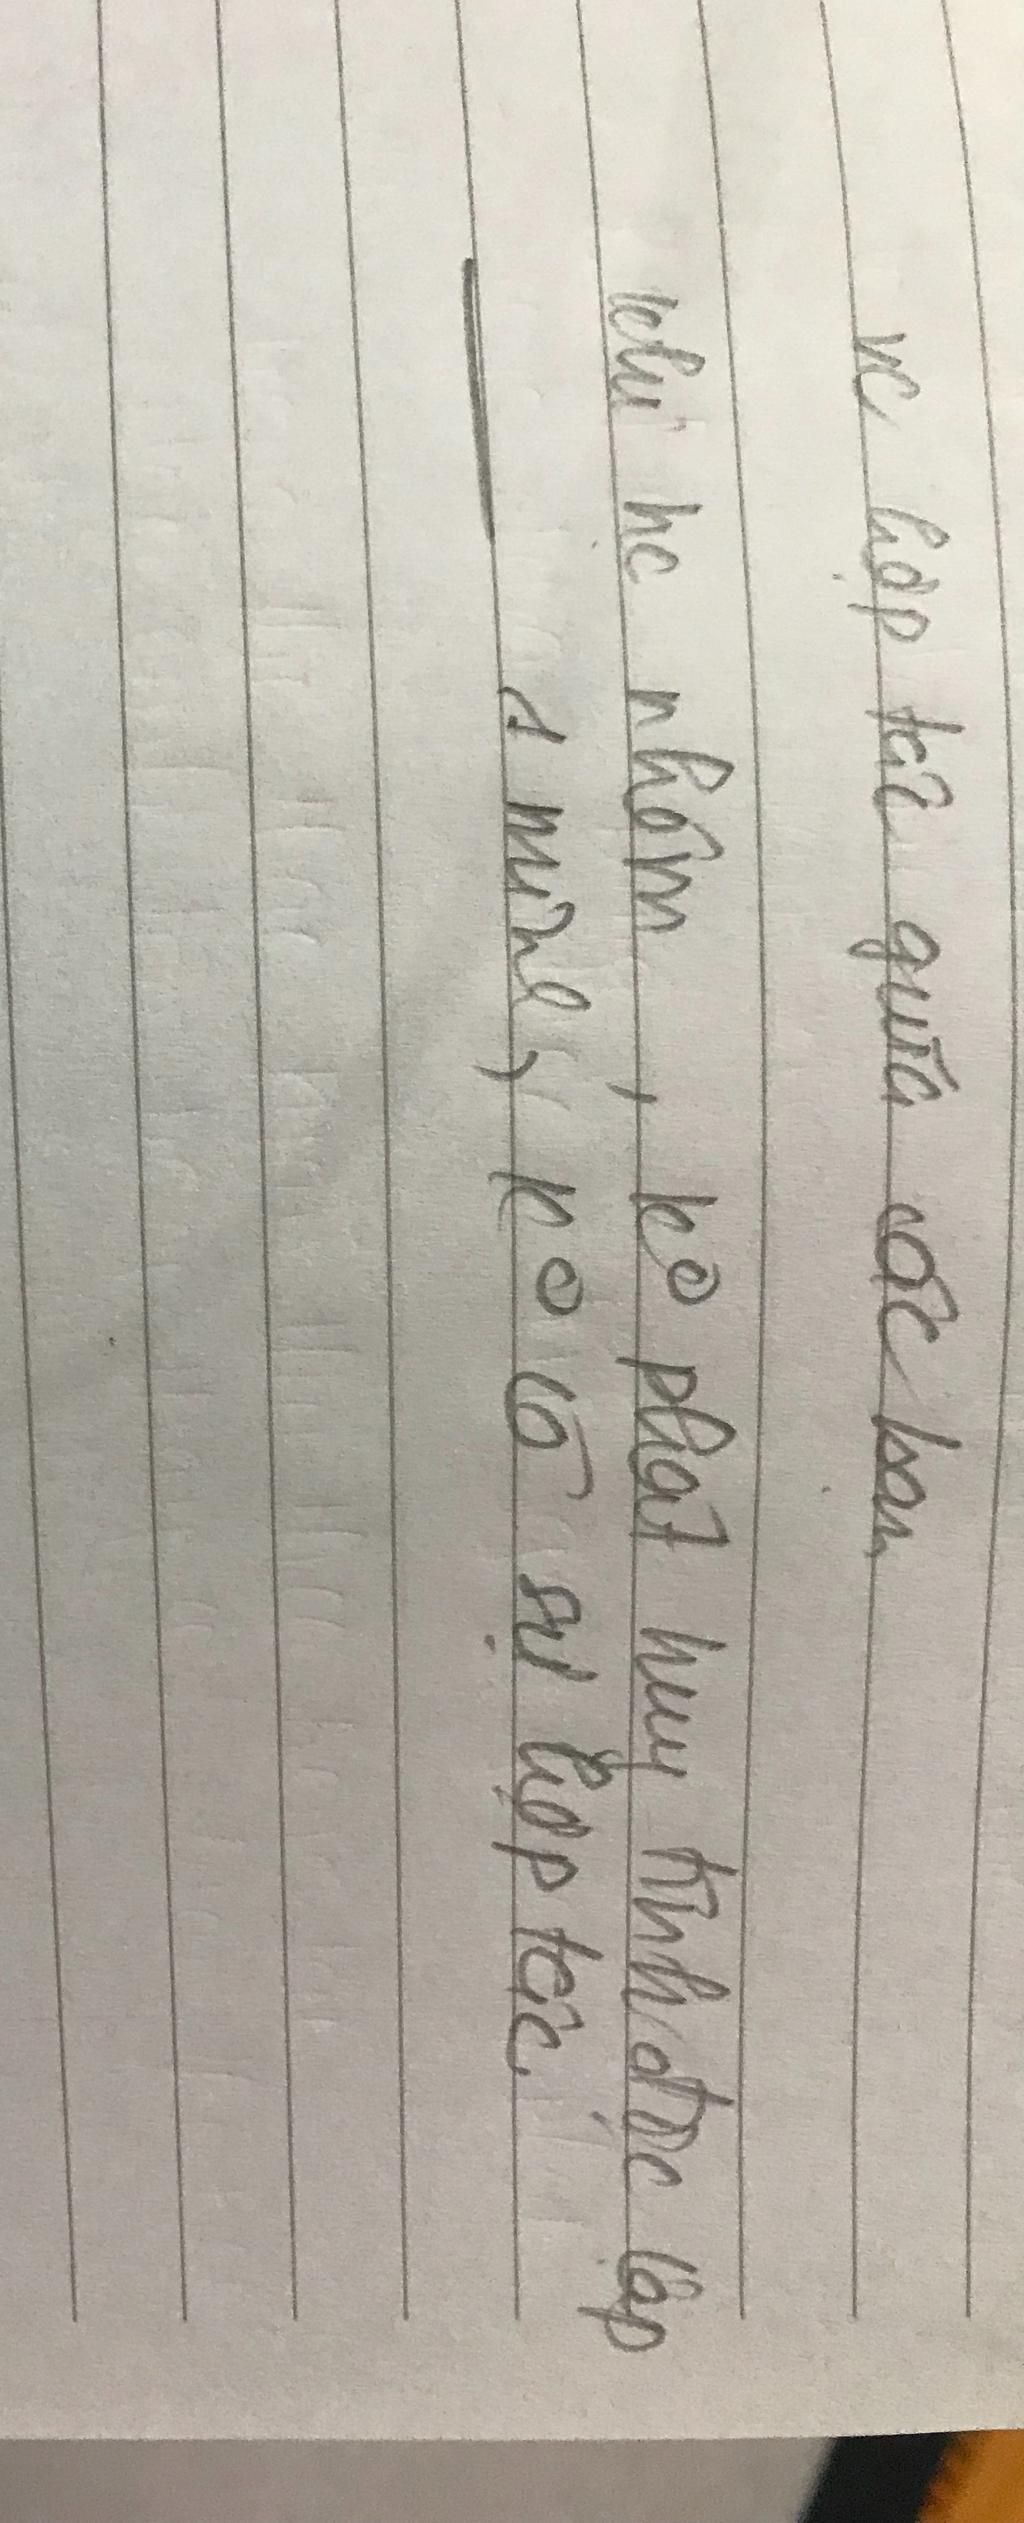 vc hợp tác giữa các bạn
khi hc nhóm, ko phát huy tính độc lập
1 mình, ko có sự hợp tác.